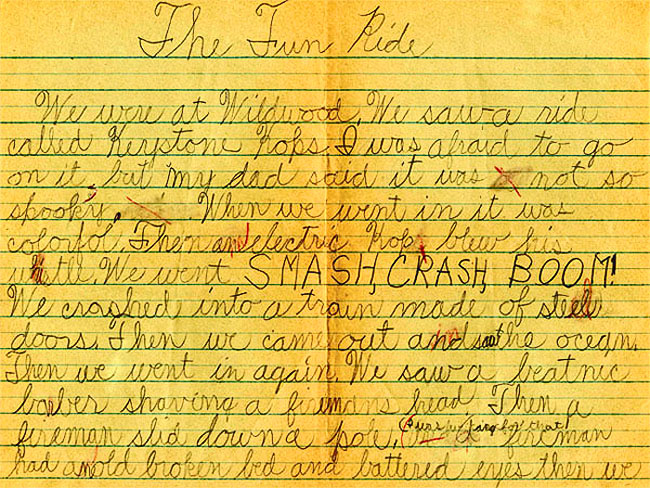 The Fun Ride
We were at Wildwood. We saw a ride
called Keystone Kops. I was afraid to go
on it but my dad said it was not so
spooky. When we went in it was
colorfol. Then an electric Kop blew his
wistle. We went SMASH, CRASH, BOOM!
We crashed into a train made of steel
doors. Then we came out and saw the ocean.
Then we went in again. We saw a beatnic
barber shaving a firemans head. Then a
fireman slid down a pole. fireman
had an old broken bed and battered eyes then we